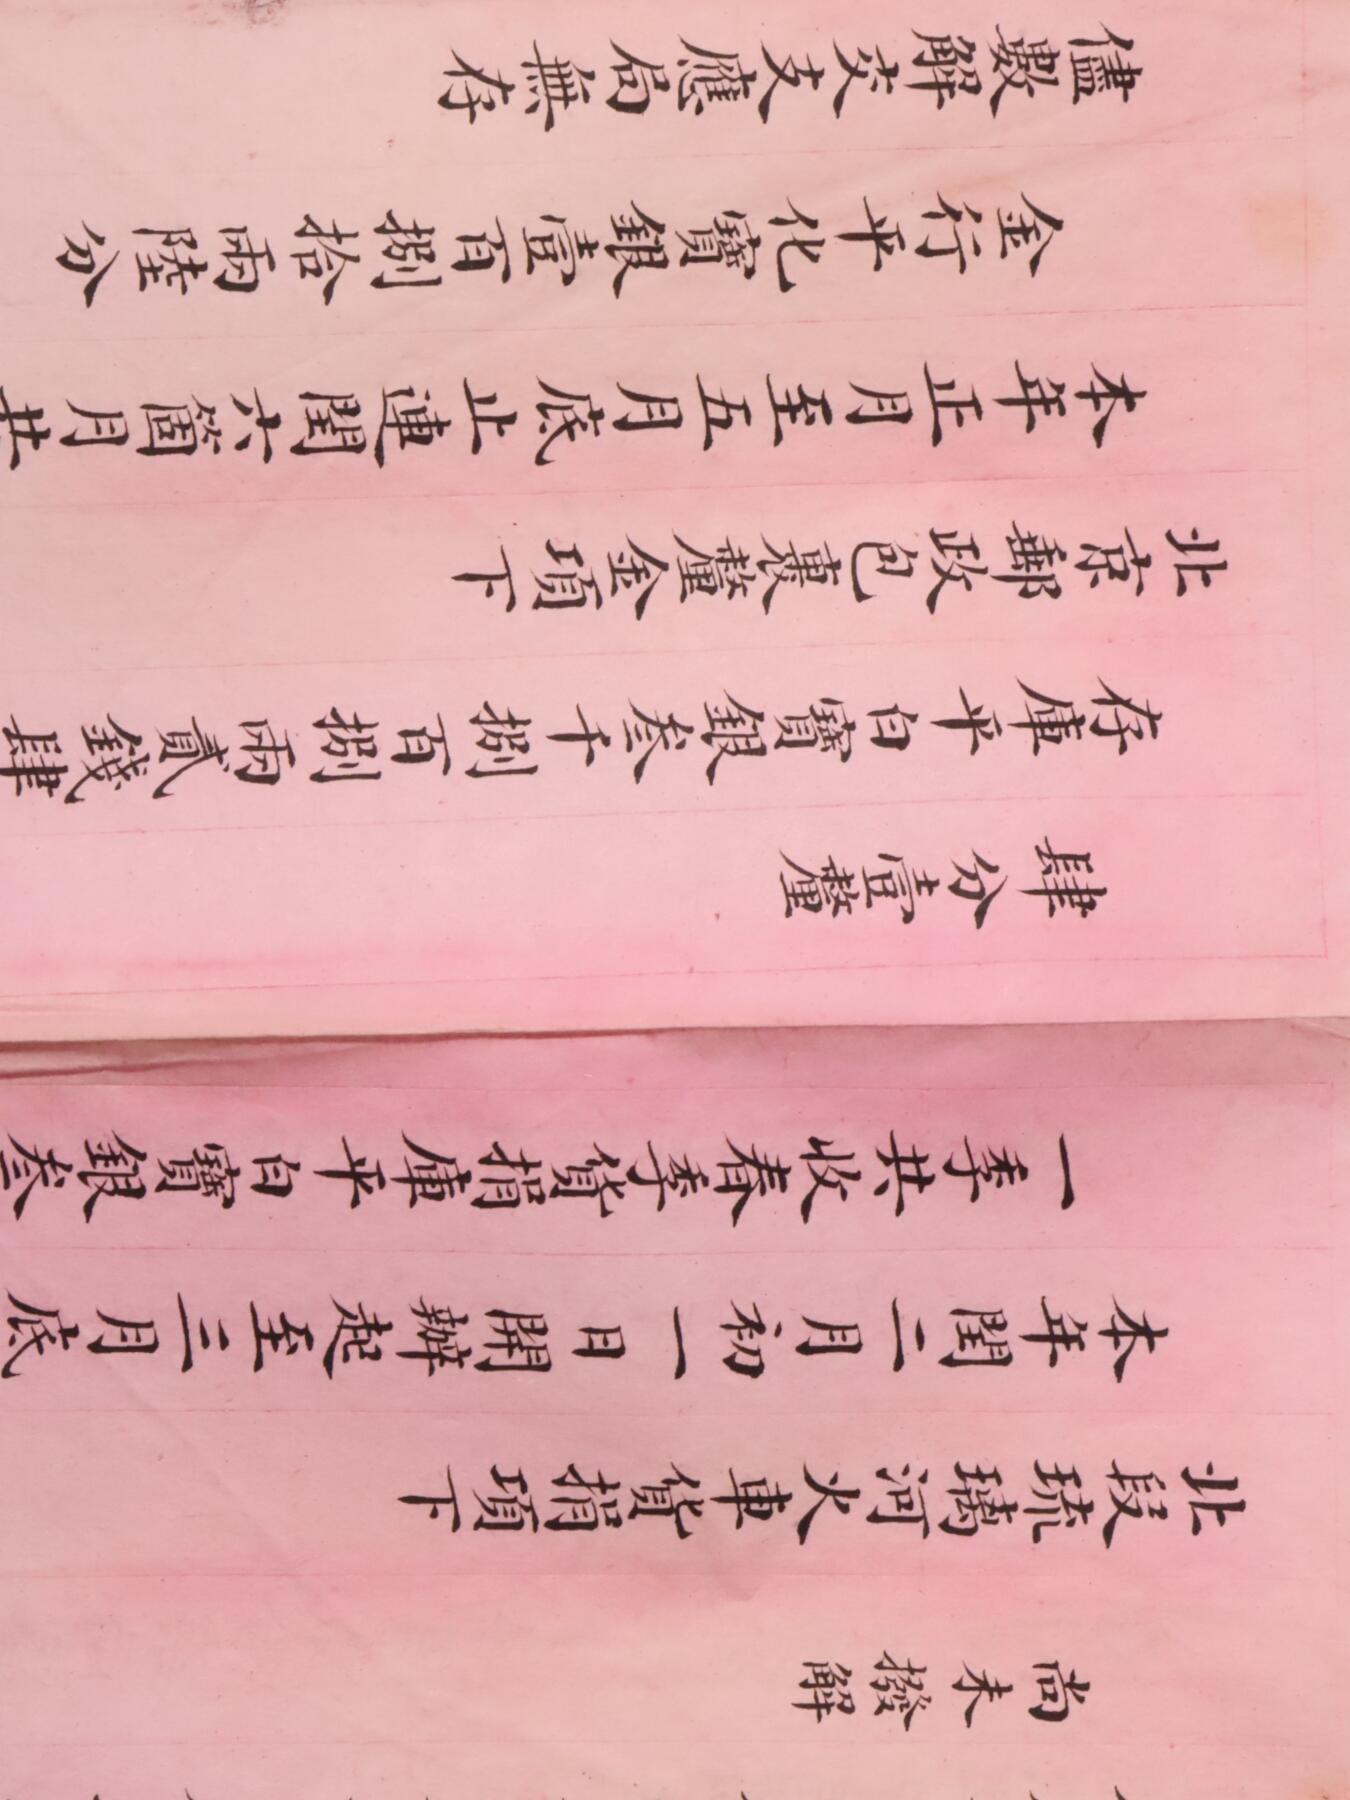 尚未撥解
北段琉璃河火車貨捐項下
本年閏二月初一日開辦起至三月底
一季共收春季貨捐庫平白寶銀叁
肆分壹釐
存庫平白寶銀叁千捌百捌兩貳錢肆
北京郵政包裹釐金項下
本年正月至五月底止連閏六箇月共
金行平化寶銀壹百捌拾兩陸分
儘數解交支應局無存